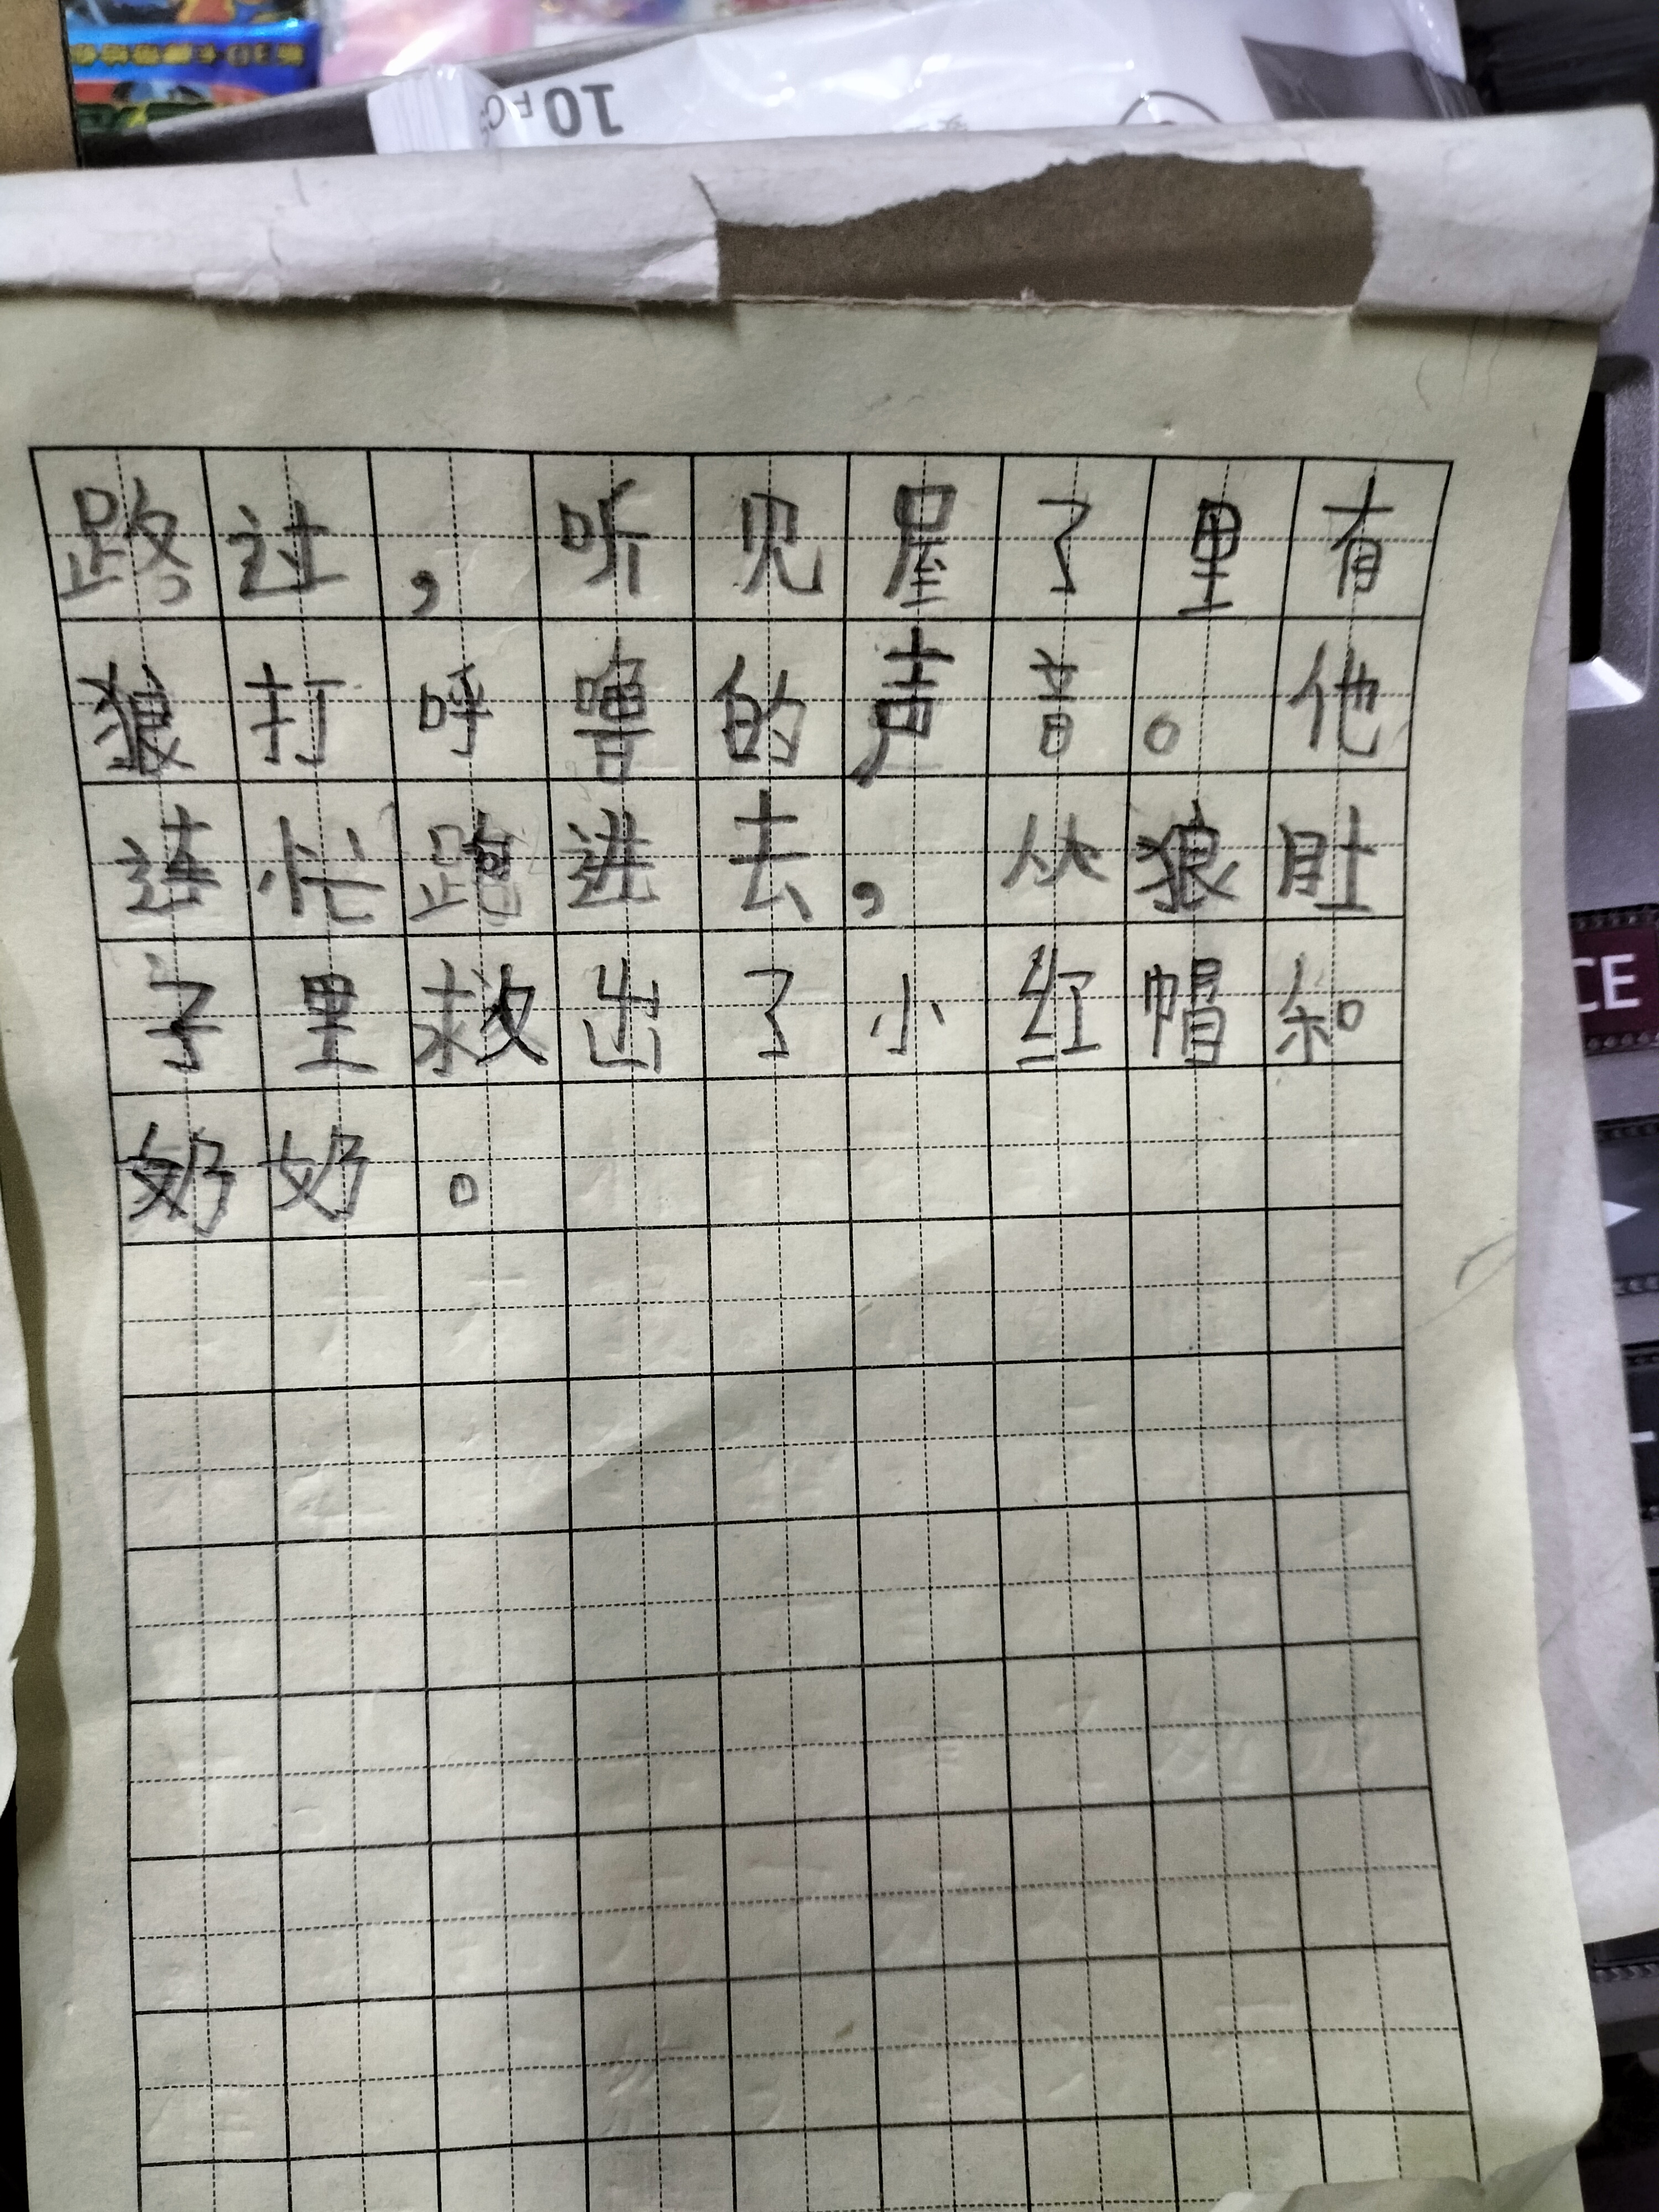 10 PC
路过，听见屋了里有
狼打呼噜的声音。他
连忙跑进去，从狼肚
子里救出了小红帽和
奶奶。
CE